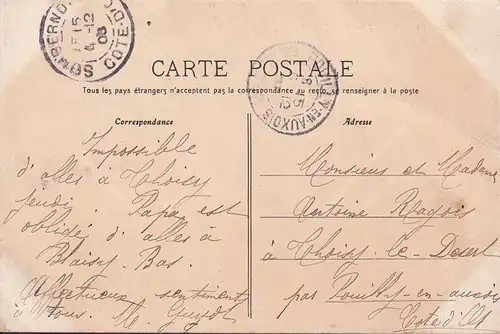 SOMBERNON
COTE-D'OR
15 15
4-12
08
POUILLY-EN-AUXOIS
CARTE POSTALE
Tous les pays étrangers n'acceptent pas la correspondance au recto, se renseigner à la poste
Correspondance
Adresse
Impossible
d'aller à Thoisy
jeudi. Papa est
obligé d'aller à
Blaisy-Bas.
Affectueux sentiments
à tous. M. Guyot
Monsieur et Madame
Antoine Ragois
à Thoisy-le-Desert
par Pouilly-en-auxois
Cote d'Or